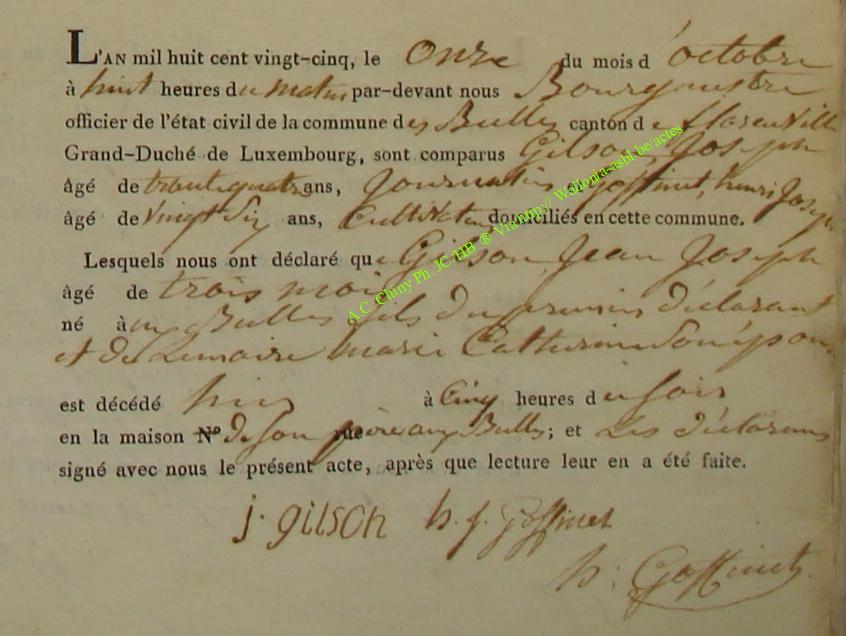 L'AN mil huit cent vingt-cinq, le Onze du mois d'octobre
à huit heures du matin par-devant nous Bourgmestre
officier de l'état civil de la commune des Bulles canton de florenville
Grand-Duché de Luxembourg, sont comparus Gilson Joseph
âgé de trente quatre ans, Journalier et Goffinet, henri Joseph
âgé de vingt Six ans, Cultivateur domiciliés en cette commune.
Lesquels nous ont déclaré que Gilson Jean Joseph
âgé de trois mois
né aux Bulles fils du premier déclarant
et de Lemaire marie Catherine Son épouse
est décédé hier à Cinq heures du soir
en la maison N° de Son père aux Bulles; et Les déclarans
signé avec nous le présent acte, après que lecture leur en a été faite.
j. gilson h. j. Goffinet
h: Goffinet
A.C. Chiny Ph. JC HB @ Via http://Wallonia-asbl.be/actes